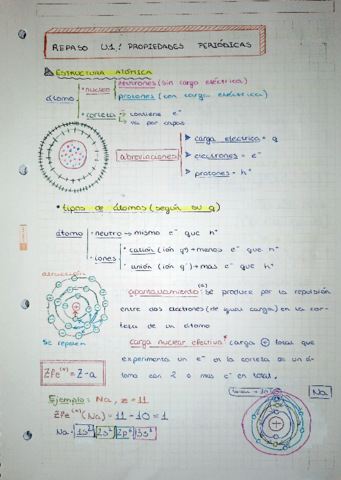 REPASO U.1: PROPIEDADES PERIÓDICAS
ESTRUCTURA ATÓMICA
átomo
núcleo
neutrones (sin carga eléctrica)
protones (con carga eléctrica)
corteza → contiene e⁻
va por capas
abreviaciones
carga eléctrica = q
electrones = e⁻
protones = h⁺
• tipos de átomos (según su q)
átomo
neutro → mismo e⁻ que h⁺
iones
catión (ión q⁺) → menos e⁻ que h⁺
anión (ión q⁻) → mas e⁻ que h⁺
atracción
Se repelen
apantallamiento: (a) Se produce por la repulsión
entre dos electrones (de igual carga) en la cor-
teza de un átomo
carga nuclear efectiva: carga + total que
experimenta un e⁻ en la corteza de un á-
tomo con 2 o mas e⁻ en total.
Zfe⁽*⁾ = Z - a
Ejemplo: Na, z = 11
Zfe⁽*⁾ (Na) = 11 - 10 = 1
Na = 1s² 2s² 2p⁶ 3s¹
Na